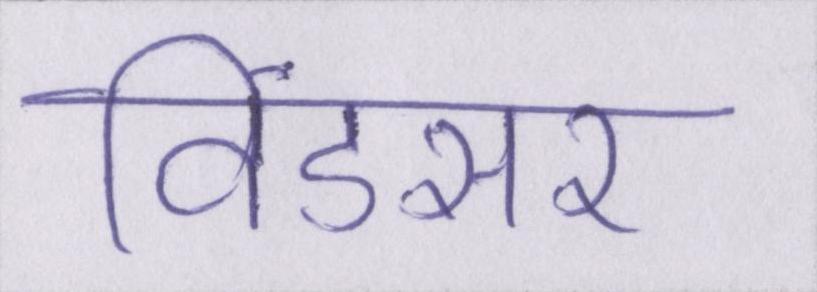 विंडसर